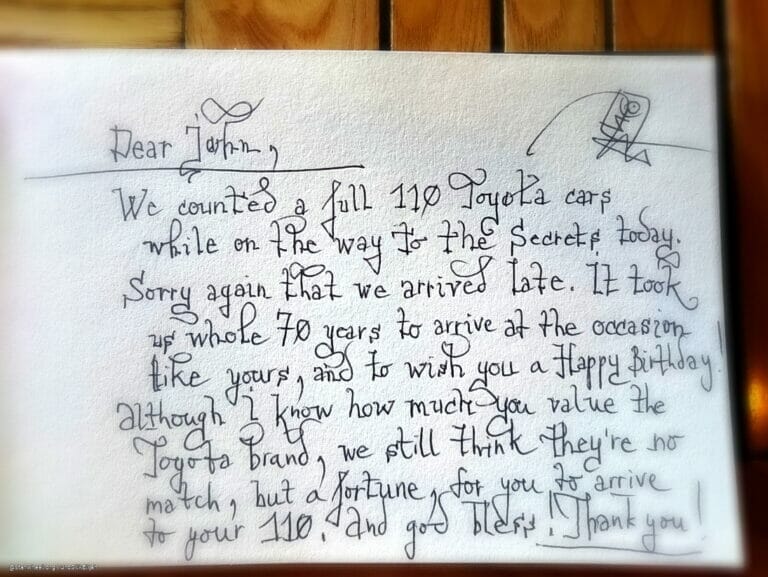 Dear John,
We counted a full 110 Toyota cars
while on the way to the Secrets today.
Sorry again that we arrived late. It took
us whole 70 years to arrive at the occasion
like yours, and to wish you a Happy Birthday!
although I know how much you value the
Toyota brand, we still think they're no
match, but a fortune, for you to arrive
to your 110. And god bless! Thank you!